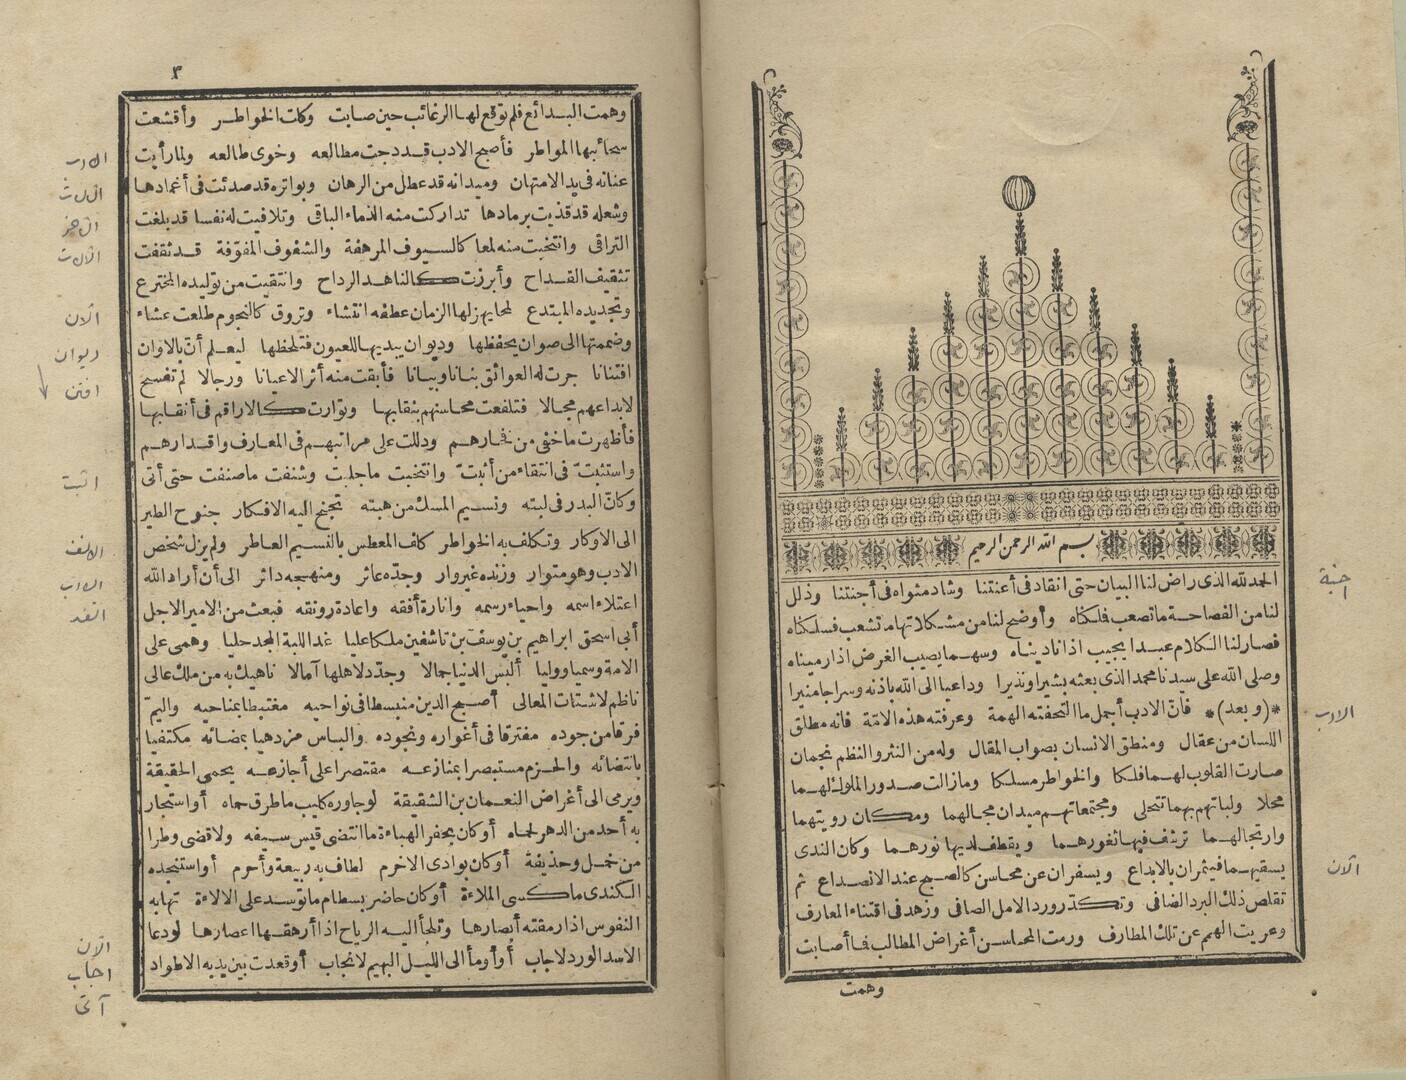 بسم الله الرحمن الرحيم
الحمد لله الذى راض لنا البيان حتى انقاد فى أعنتنا وشاد مثواه فى أجنتنا وذلل
لنا من الفصاحة ما تصعب فلكناه وأوضح لنا من مشكلاتها ما تشعب فسلكناه
فصار لنا الكلام عبدا يجيب اذا ناديناه وسهما يصيب الغرض اذا رميناه
وصلى الله على سيدنا محمد الذى بعثه بشيرا ونذيرا وداعيا الى الله باذنه وسراجا منيرا
*(وبعد)* فان الادب أجمل ما التحفته الهمة وعرفته هذه الامّة فانه مطلق
اللسان من عقال ومنطق الانسان بصواب المقال وله من النثر والنظم نجمان
صارت القلوب لهما فلكا والخواطر مسلكا ومازالت صدور الملوك لهما
محلا ولباتهم بهما تتحلى ومجتمعاتهم ميدان مجالهما ومكان رويتهما
وارتجالهما ترشف فيها ثغورهما ويقطف لديها نورهما وكان الندى
يسقيهما فيثمران بالابداع ويسفران عن محاسن كالصبح عند الانصداع ثم
تقلص ذلك البرد الضافى وتكدّر ورد الامل الصافى وزهد فى اقتناء المعارف
وعريت الهمم عن تلك المطارف ورمت المحاسن أغراض المطالب فما أصابت
وهمت
اجنة
الادب
الآن
٣
وهمت البدائع فلم توقع لها الرغائب حين صابت وكلت الخواطر وأقشعت
سحائبها المواطر فأصبح الادب قد دجت مطالعه وخوى طالعه ولما رأيت
عنانه فى يد الامتهان وميدانه قد عطل من الرهان وبواتره قد صدئت فى أغمادها
وشعله قد قذيت برمادها تداركت منه الذماء الباقى وتلافيت له نفسا قد بلغت
التراقى وانتخبت منه لمعا كالسيوف المرهفة والشفوف المفوّفة قد ثقفت
تثقيف القداح وأبرزت كالناهد الرداح وانتقيت من توليده المخترع
وتجديده المبتدع لمحا يهز لها الزمان عطفه انتشاء وتروق كالنجوم طلعت عشاء
وضممتها الى صوان يحفظها وديوان يبديها للعيون فتلحظها ليعلم أن بالاوان
افتنانا جرت له العوائق بنانا وبيانا فأبقت منه أثر الاعيانا ورجالا لم تفسح
لابداعهم مجالا فتلفعت محاسنهم بنقابها وتوارت كالاراقم فى أنقابها
فأظهرت ما خفى من فخارهم ودللت على مراتبهم فى المعارف واقدارهم
واستثبتّ فى انتقاء من أثبتّ وانتخبت ما جلبت وشنفت ما صنفت حتى أتى
وكان البدر فى لبته ونسيم المسك من هبته تجنح اليه الافكار جنوح الطير
الى الاوكار وتكلف به الخواطر كلف المعطس بالنسيم العاطر ولم يزل شخص
الادب وهو متوار وزنده غير وار وجدّه عاثر ومنهجه داثر الى أن أراد الله
اعتلاء اسمه واحياء رسمه وانارة أفقه واعادة رونقه فبعث من الامير الاجل
أبى اسحق ابراهيم بن يوسف بن تاشفين ملكا عليا غدا للبة المجد حليا وهمى على
الامة وسميا ووليا ألبس الدنيا جمالا وجدّد لاهلها آمالا ناهيك به من ملك عالى
ناظم لاشتات المعالى أصبح الدين منبسطا فى نواحيه مغتبطا بمناحيه واليمّ
فرقا من جوده مفترقا فى أغواره ونجوده والباس مزدهيا بمضائه مكتفيا
بانتضائه والحزم مستبصرا بمنازعه مقتصرا على أجازعه يحمى الحقيقة
ويرمى الى أغراض النعمان بن الشقيقة لو جاوره كليب ما طرق حماه أو استجار
به أحد من الدهر لحماه أو كان بجفر الهباءة ما انتضى قيس سيفه ولا قضى وطرا
من حمل وحذيفة أو كان بوادى الاخرم لطاف به ربيعة وأحرم أو استنجده
الكندى ما كسى الملاءة أو كان حاضر بسطام ما توسد على الالاءة تهابه
النفوس اذا رمقته أبصارها وتلجأ اليه الرياح اذا أرهقها اعصارها لو دعا
الاسد الورد لاجاب أو أومأ الى الليل البهيم لانجاب أو قعدت بين يديه الاطواد
الادب
الآن
ديوان
افتن
اثبت
الانف
الادب
الآن
اجاب
آتى